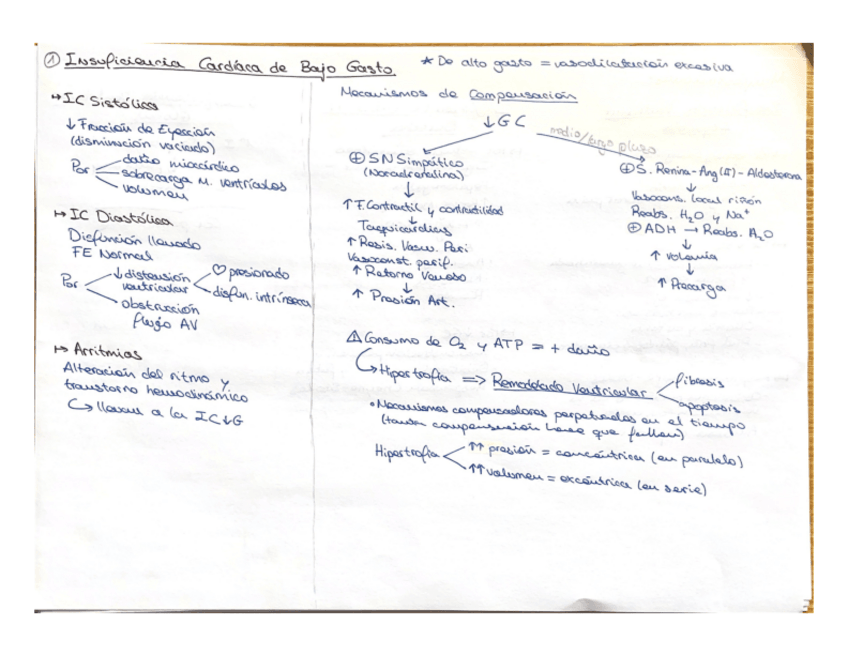 ① Insuficiencia Cardíaca de Bajo Gasto
* De alto gasto = vasodilatación excesiva
↦ IC Sistólica
↓ Fracción de Eyección
(disminución vaciado)
Por
daño miocárdico
sobrecarga M. ventrículos
volumen
↦ IC Diastólica
Disfunción llenado
FE Normal
Por
↓ distensión ventricular
♡ presionado
disfun. intrínseca
obstrucción
flujo AV
↦ Arritmias
Alteración del ritmo y
transtorno hemodinámico
↪ llevan a la IC↓G
Mecanismos de Compensación
↓ GC
medio/largo plazo
⊕ SN Simpático
(Noradrenalina)
↓
↑ F. Contractil y contractilidad
↓
Taquicardias
↑ Resis. Vasc. Peri
Vasoconst. perif.
↑ Retorno Venoso
↓
↑ Presión Art.
⊕ S. Renina-Ang(II)-Aldosterona
↓
Vasocons. local riñón
Reabs. H₂O y Na⁺
⊕ ADH → Reabs. H₂O
↓
↑ volemia
↓
↑ Precarga
⚠ Consumo de O₂ y ATP = + daño
↪ Hipertrofia => Remodelado Ventricular
fibrosis
apoptosis
• Mecanismos compensadores perpetuados en el tiempo
(tanta compensación hace que fallen)
Hipertrofia
↑↑ presión = concéntrica (en paralelo)
↑↑ volumen = excéntrica (en serie)